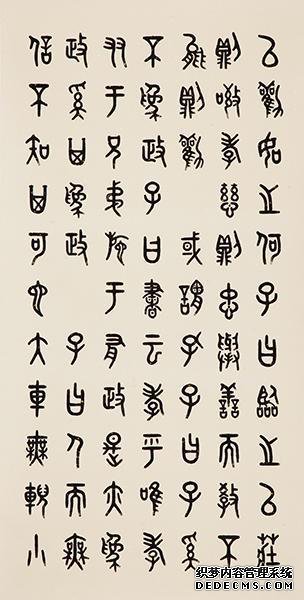 以勸如之何子曰臨之以莊
則敬孝慈則忠舉善而教不
能則勸 或謂孔子曰子奚
不為政子曰書云孝乎唯孝
友于兄弟施于有政是亦為
政奚其為政 子曰人而無
信不知其可也大車無輗小
织梦内容管理系统
DEDECMS.COM